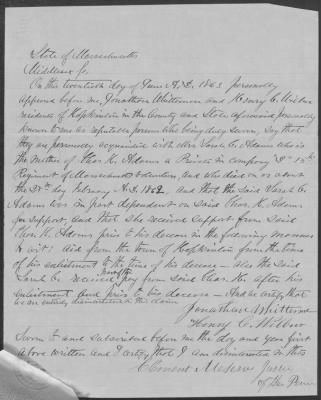 State of Massachusetts
Middlesex ss.
On the twentieth day of June A.D. 1863 personally
appeared before me, Jonathan Whittemore and Henry C. Wilbur
residents of Hopkinton in the County and State aforesaid personally
known to me as reputable persons who being duly sworn, say that
they are personally acquainted with Mrs. Sarah C. Adams who is
the mother of Chas. K. Adams a Private in company 15th
Regiment of Massachusetts Volunteers, and who died on or about
the day February A.D. 1862. And that the said Sarah C.
Adams was in part dependent on said Chas. K. Adams
for support, and that she received support from said
Chas. K. Adams prior to his decease in the following manner
to wit: Aid from the town of Hopkinton from the time
of his enlistment to the time of his decease – also the said
Sarah C. received pay from said Chas. K. after his
enlistment and prior to his decease – And we certify that
we are entirely disinterested in this claim
Jonathan Whittemore
Henry C. Wilbur
Sworn to and subscribed before me the day and year first
above written and I certify that I am disinterested in this
Clement Meserve Justice
of the Peace